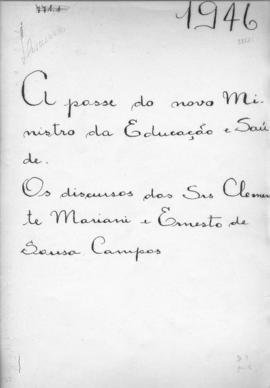 1946
A posse do novo Mi-
nistro da Educação e Saú
de.
Os discursos dos Srs Clemen
te Mariani e Ernesto de
Sousa Campos